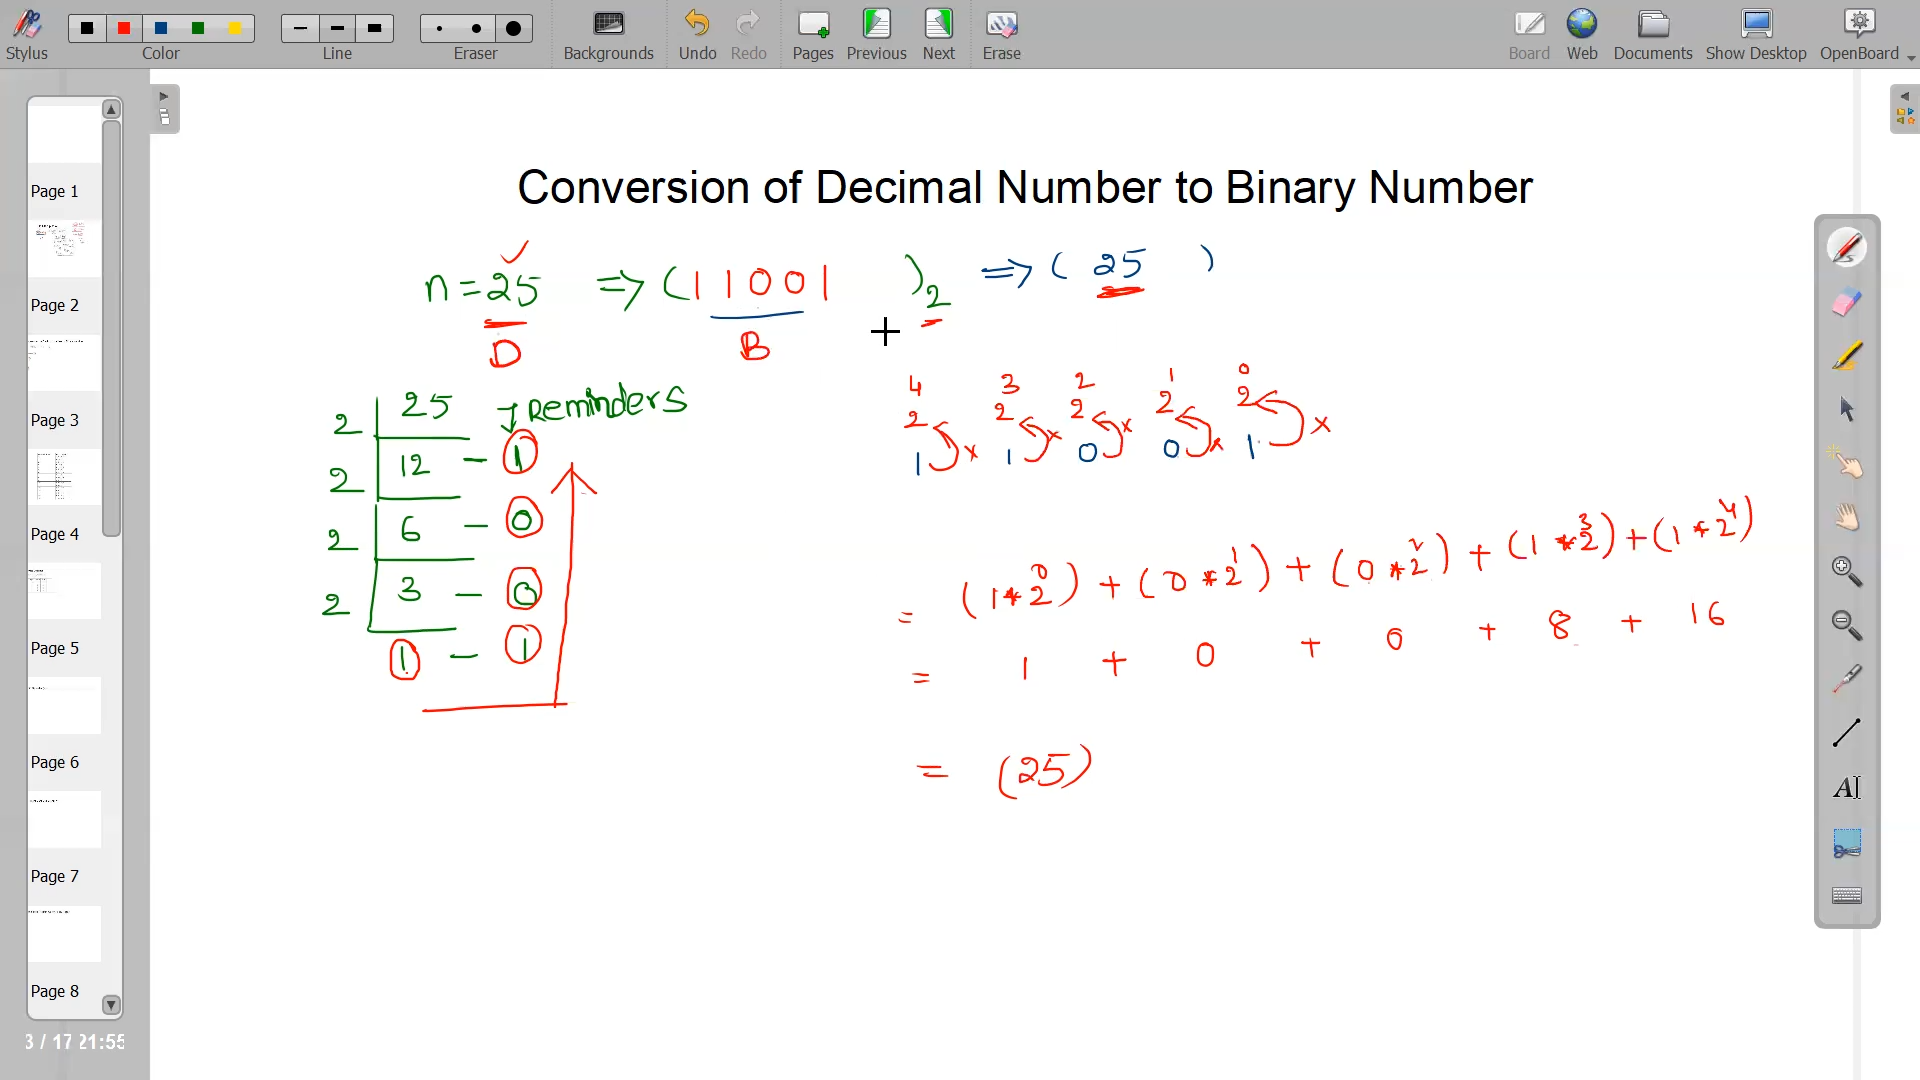 Stylus Color Line Eraser Backgrounds Undo Redo Pages Previous Next Erase Board Web Documents Show Desktop OpenBoard
Page 1
Page 2
Page 3
Page 4
Page 5
Page 6
Page 7
Page 8
3 / 17 21:55
Conversion of Decimal Number to Binary Number
n = 25 => (11001)2 => (25)
D B
2 25 Reminders
2 12 - 1
2 6 - 0
2 3 - 0
1 - 1
4 3 2 1 0
2 2 2 2 2
1 x 1 x 0 x 0 x 1 x
= (1*2^0) + (0*2^1) + (0*2^2) + (1*2^3) + (1*2^4)
= 1 + 0 + 0 + 8 + 16
= (25)
AI